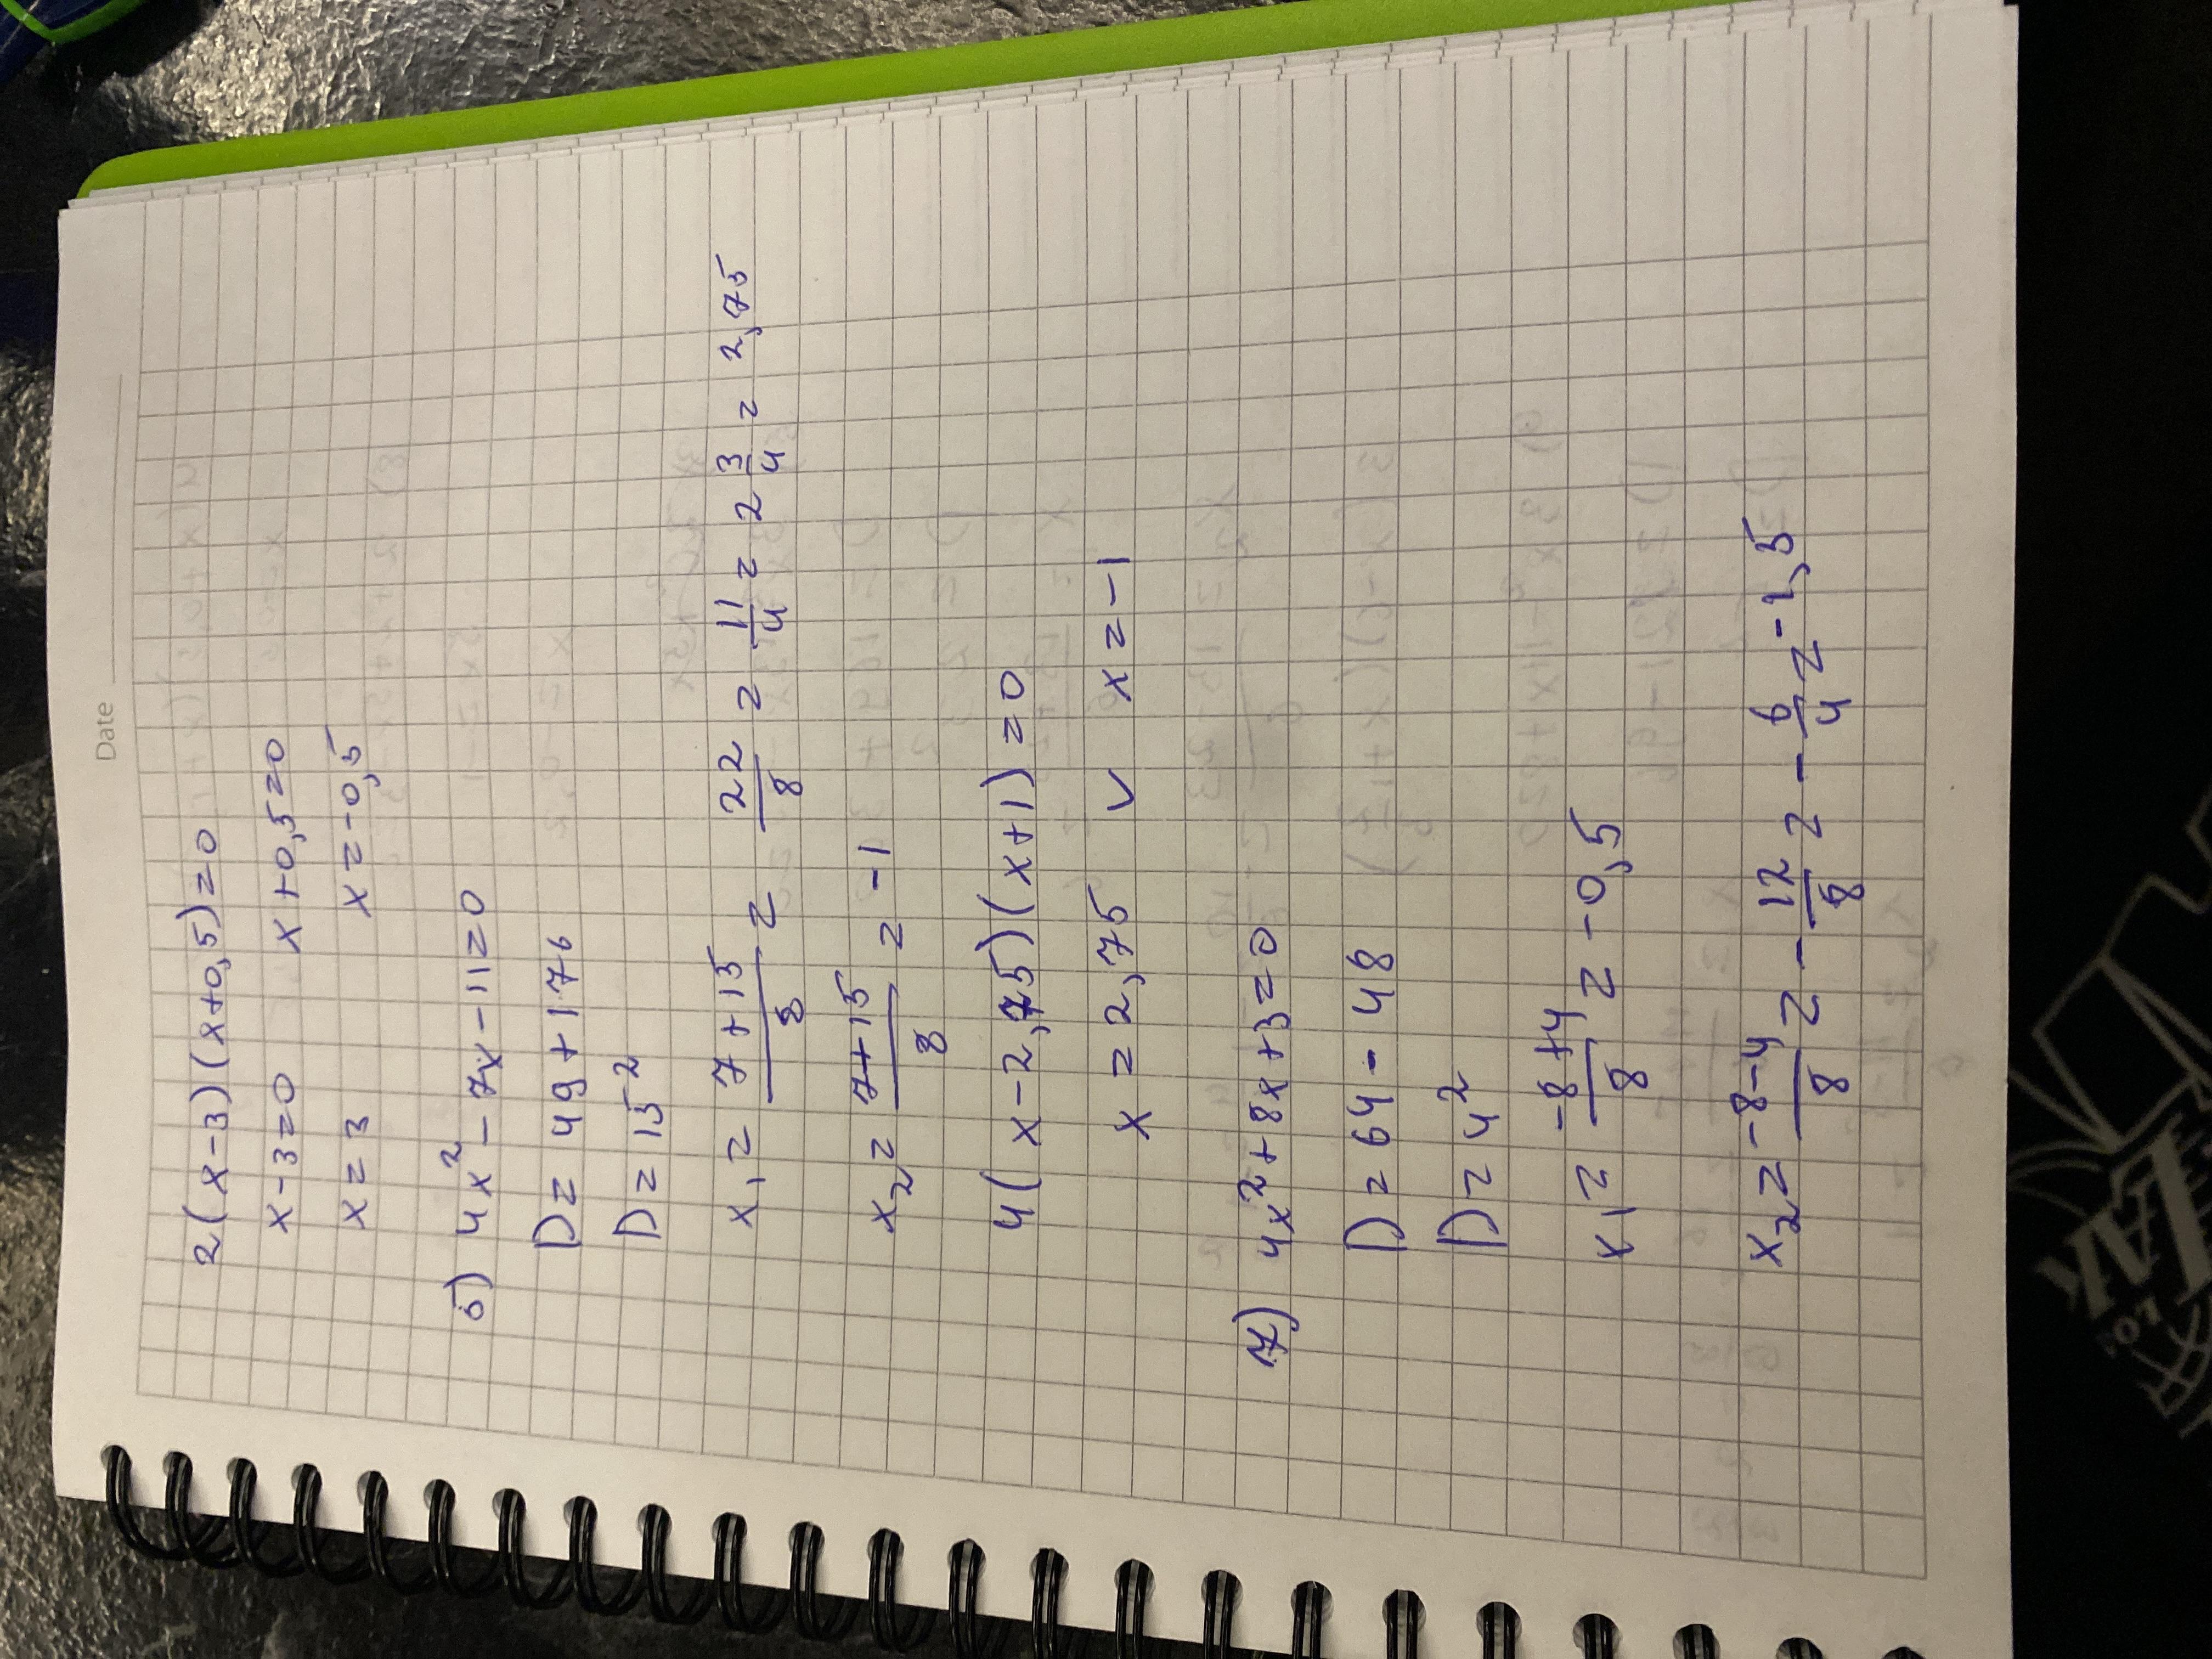 Date
2(x-3)(x+0,5)=0
x-3=0 x+0,5=0
x=3 x=-0,5
6) 4x²-7x-11=0
D=49+176
D=15²
x₁=\frac{7+15}{8}=\frac{22}{8}=\frac{11}{4}=2\frac{3}{4}=2,75
x₂=\frac{7+15}{8}=-1
4(x-2,75)(x+1)=0
x=2,75 v x=-1
7) 4x²+8x+3=0
D=64-48
D=4²
x₁=\frac{-8+4}{8}=-0,5
x₂=\frac{-8-4}{8}=-\frac{12}{8}=-\frac{6}{4}=-1,5